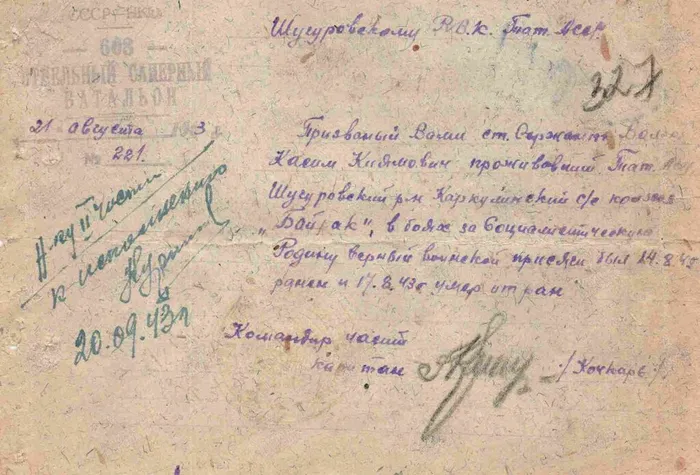 СССР-НКО
608
ОТДЕЛЬНЫЙ САПЕРНЫЙ
БАТАЛЬОН
21 августа 3 г.
№ 221.
Шугуровскому Р.В.К. Тат. Асср.
327
Призваный Вами ст. Сержант
Касим Киямович проживовший Тат.
Шугуровский р-н Каркулинский с/с колхоз
„Байрак", в боях за Социалистическую
Родину верный воинской присяги был 14.8.43г
ранен и 17.8.43г умер от ран
Командир части
капитан /Кочкарь/
Н-ку II части
к исполнению
20.09.43г